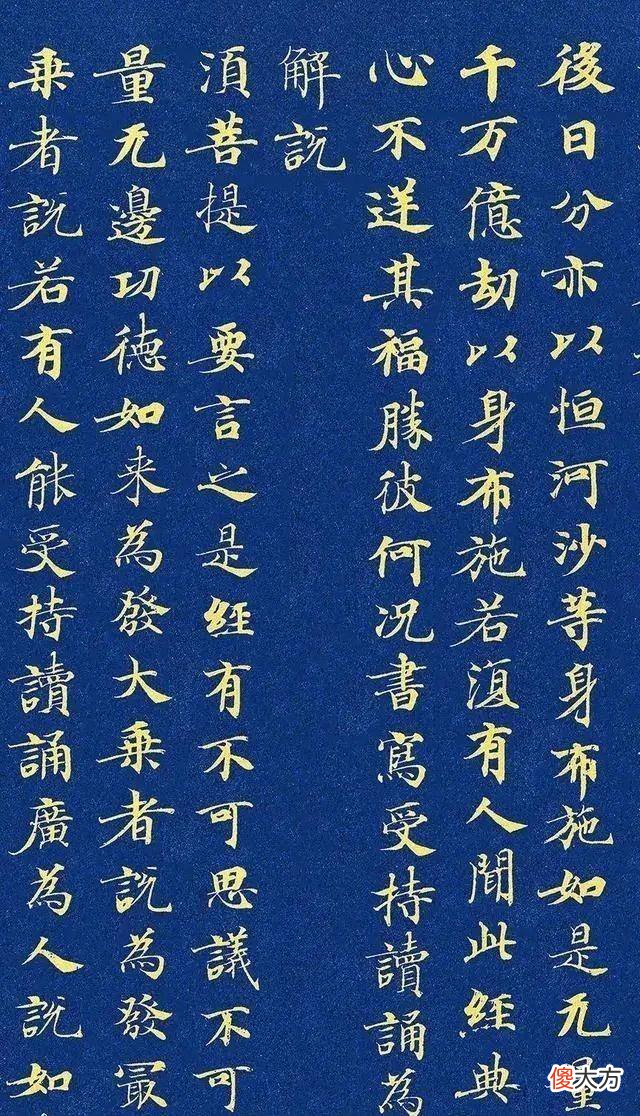 後日分亦以恒河沙等身布施如是无量
千万億劫以身布施若復有人聞此經典
心不逆其福勝彼何况書寫受持讀誦為
解説
須菩提以要言之是經有不可思議不可
量无邊功德如来為發大乗者説為發冣
乗者説若有人能受持讀誦廣為人説如
傻大方